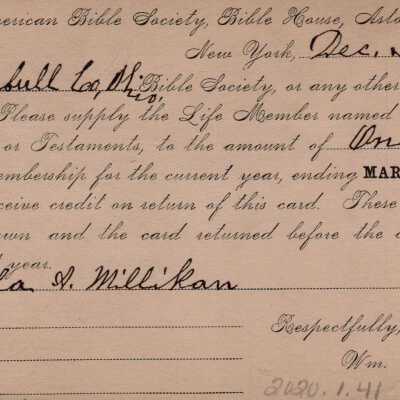 merican Bible Society, Bible House, Asto
New York, Dec.
bull Co, Ohio, Bible Society, or any other
Please supply the Life Member named
or Testaments, to the amount of On
embership for the current year, ending MAR
ceive credit on return of this card. These
own and the card returned before the
year.
A. Millikan
Respectfully,
Wm.
2020.1.41